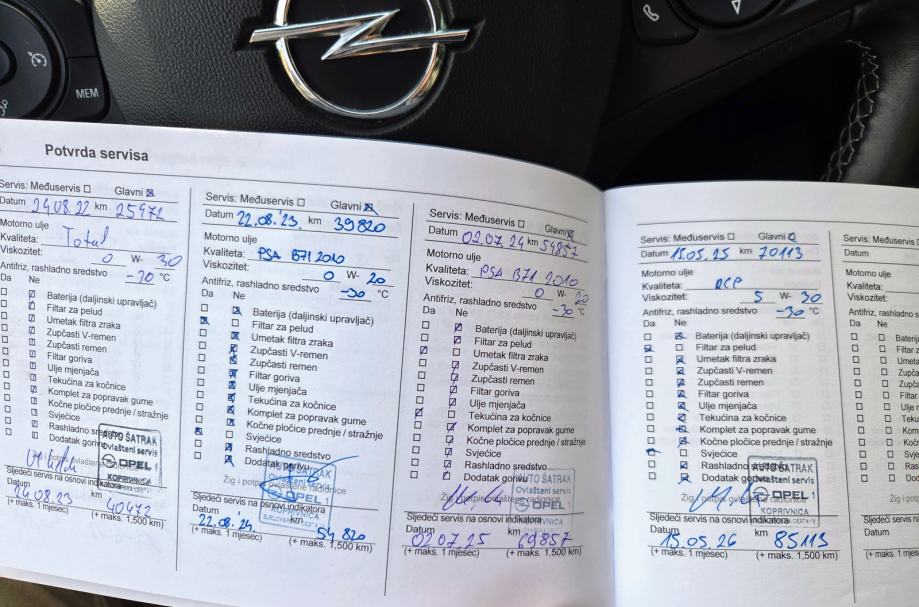 MEM
Potvrda servisa
Servis: Međuservis Glavni
Datum 24.08.22 km 25472
Motorno ulje
Kvaliteta: Total
Viskozitet: 0 W- 30
Antifriz, rashladno sredstvo -70 °C
Da Ne
Baterija (daljinski upravljač)
Filtar za pelud
Umetak filtra zraka
Zupčasti V-remen
Zupčasti remen
Filtar goriva
Ulje mjenjača
Tekućina za kočnice
Komplet za popravak gume
Kočne pločice prednje / stražnje
Svjećice
Rashladno
Dodatak gorivu
AUTO ŠATRAK
Ovlašteni servis
OPEL
KOPRIVNICA
Sljedeći servis na osnovi indikatora
Datum km
24.08.23 40472
(+ maks. 1 mjesec) (+ maks. 1,500 km)
Servis: Međuservis Glavni
Datum 22.08.23 km 39820
Motorno ulje
Kvaliteta: PSA B71 2010
Viskozitet: 0 W- 20
Antifriz, rashladno sredstvo -30 °C
Da Ne
Baterija (daljinski upravljač)
Filtar za pelud
Umetak filtra zraka
Zupčasti V-remen
Zupčasti remen
Filtar goriva
Ulje mjenjača
Tekućina za kočnice
Komplet za popravak gume
Kočne pločice prednje / stražnje
Svjećice
Rashladno sredstvo
Dodatak gorivu
Ovlašteni servis
OPEL
KOPRIVNICA
Sljedeći servis na osnovi indikatora
Datum km
22.08.24 54820
(+ maks. 1 mjesec) (+ maks. 1,500 km)
Servis: Međuservis Glavni
Datum 02.07.24 km 54857
Motorno ulje
Kvaliteta: PSA B71 2010
Viskozitet: 0 W- 20
Antifriz, rashladno sredstvo -30 °C
Da Ne
Baterija (daljinski upravljač)
Filtar za pelud
Umetak filtra zraka
Zupčasti V-remen
Zupčasti remen
Filtar goriva
Ulje mjenjača
Tekućina za kočnice
Komplet za popravak gume
Kočne pločice prednje / stražnje
Svjećice
Rashladno sredstvo
Dodatak goriva
Žig i potpis ovlaštene
Ovlašteni servis
OPEL
KOPRIVNICA
Sljedeći servis na osnovi indikatora
Datum km
02.07.25 69857
(+ maks. 1 mjesec) (+ maks. 1,500 km)
Servis: Međuservis Glavni
Datum 15.05.25 km 70113
Motorno ulje
Kvaliteta:
Viskozitet: 5 W- 30
Antifriz, rashladno sredstvo -30 °C
Da Ne
Baterija (daljinski upravljač)
Filtar za pelud
Umetak filtra zraka
Zupčasti V-remen
Zupčasti remen
Filtar goriva
Ulje mjenjača
Tekućina za kočnice
Komplet za popravak gume
Kočne pločice prednje / stražnje
Svjećice
Rashladno sredstvo
Dodatak goriva
ŠATRAK
Ovlašteni servis
OPEL
KOPRIVNICA
Sljedeći servis na osnovi indikatora
Datum km
15.05.26 85113
(+ maks. 1 mjesec) (+ maks. 1,500 km)
Servis: Međuservis
Datum
Motorno ulje
Kvaliteta:
Viskozitet:
Antifriz, rashladno
Da Ne
Sljedeći servis na
Datum
(+ maks. 1 mjesec)